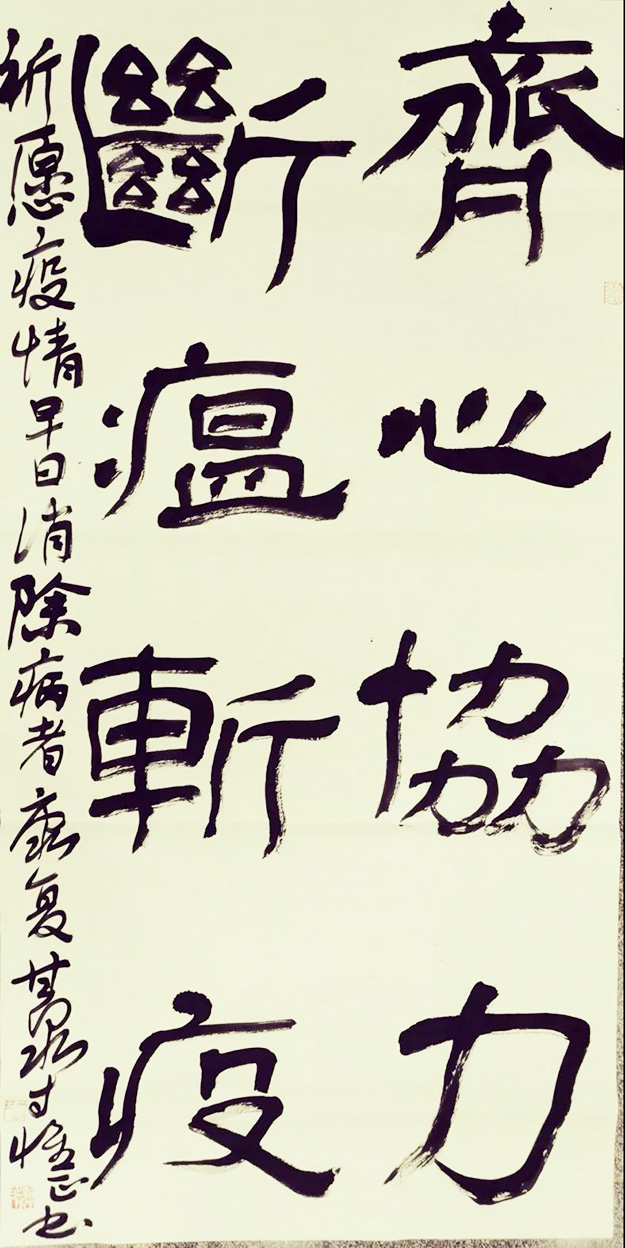 齊心協力
斷瘟斬疫
祈愿疫情早日消除病者康复